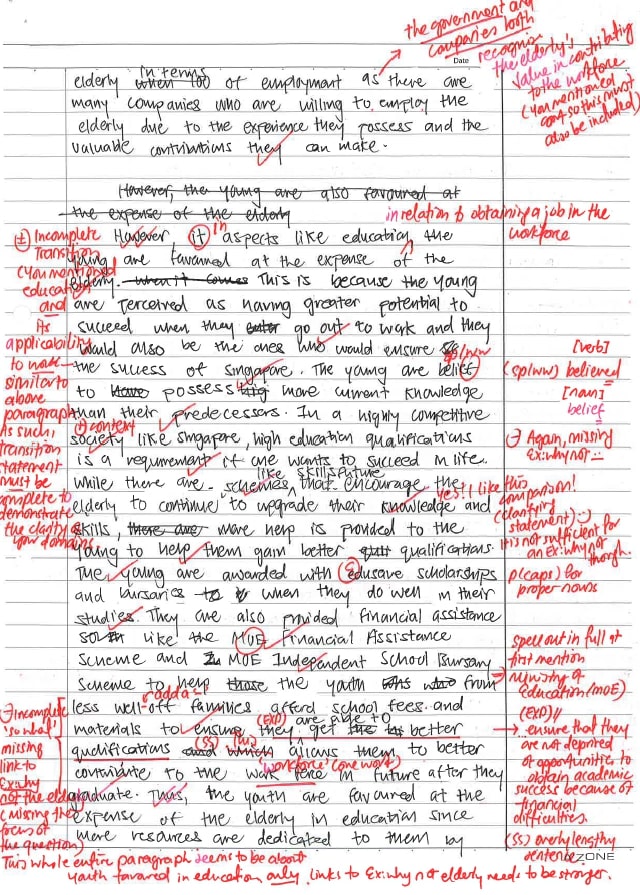 the government and
companies both
recognise
the elderly's
value in contributing
to the workforce
(you mentioned
cont. so this must
also be included)
Date
in terms
elderly when too of employment as there are
many companies who are willing to employ the
elderly due to the experience they possess and the
valuable contributions they can make.
However, the young are also favoured at
the expense of the elderly
in relation to obtaining a job in the
workforce
(±) Incomplete
Transition
(you mentioned
education
and
As
applicability
to
similar to
above
paragraph
As such,
transition
statement
must be
complete to
demonstrate
the clarity of
your domains
However it in aspects like education, the
young are favoured at the expense of the
elderly. when it comes This is because the young
are perceived as having greater potential to
succeed when they go out to work and they
would also be the ones who would ensure
the success of Singapore. The young are belief sp/ww
to have possess more current knowledge
than their predecessors. In a highly competitive
(+) context
society like Singapore, high education qualifications
is a requirement if one wants to succeed in life.
like skillsfuture
While there are schemes, that encourage the
elderly to continue to upgrade their knowledge and
skills, there are more help is provided to the
young to help them gain better qualifications.
The young are awarded with Edusave scholarships
and bursaries when they do well in their
studies. They are also provided financial assistance
like the MOE Financial Assistance
Scheme and MOE Independent School Bursary
Scheme to help those the youth who from
less well-off families afford school fees and
materials to ensure they are able to get better (EXP)
qualifications and which (SS) This allows them to better
contribute to the work force in future after they
'workforce' (one word)
graduate. Thus, the youth are favoured at the
expense of the elderly in education since
more resources are dedicated to them by
[verb]
(sp/ww) believed
[noun]
belief
Again, missing
Ex: why not
yes! I like this
comparison!
(clarifying
statement)
it is not sufficient for
an Ex: why not
though.
p(caps) for
proper nouns
spell out in full at
first mention
Ministry of
Education (MOE)
(EXP)
ensure that they
are not deprived
of opportunities to
obtain academic
success because of
financial
difficulties.
(SS) overly lengthy
sentence
Incomplete
'so what'
missing
link to
Ex: why
not the elderly
(missing the
focus of
the question)
This whole entire paragraph seems to be about
youth favored in education only. Links to Ex: why not elderly needs to be stronger.
ZONE